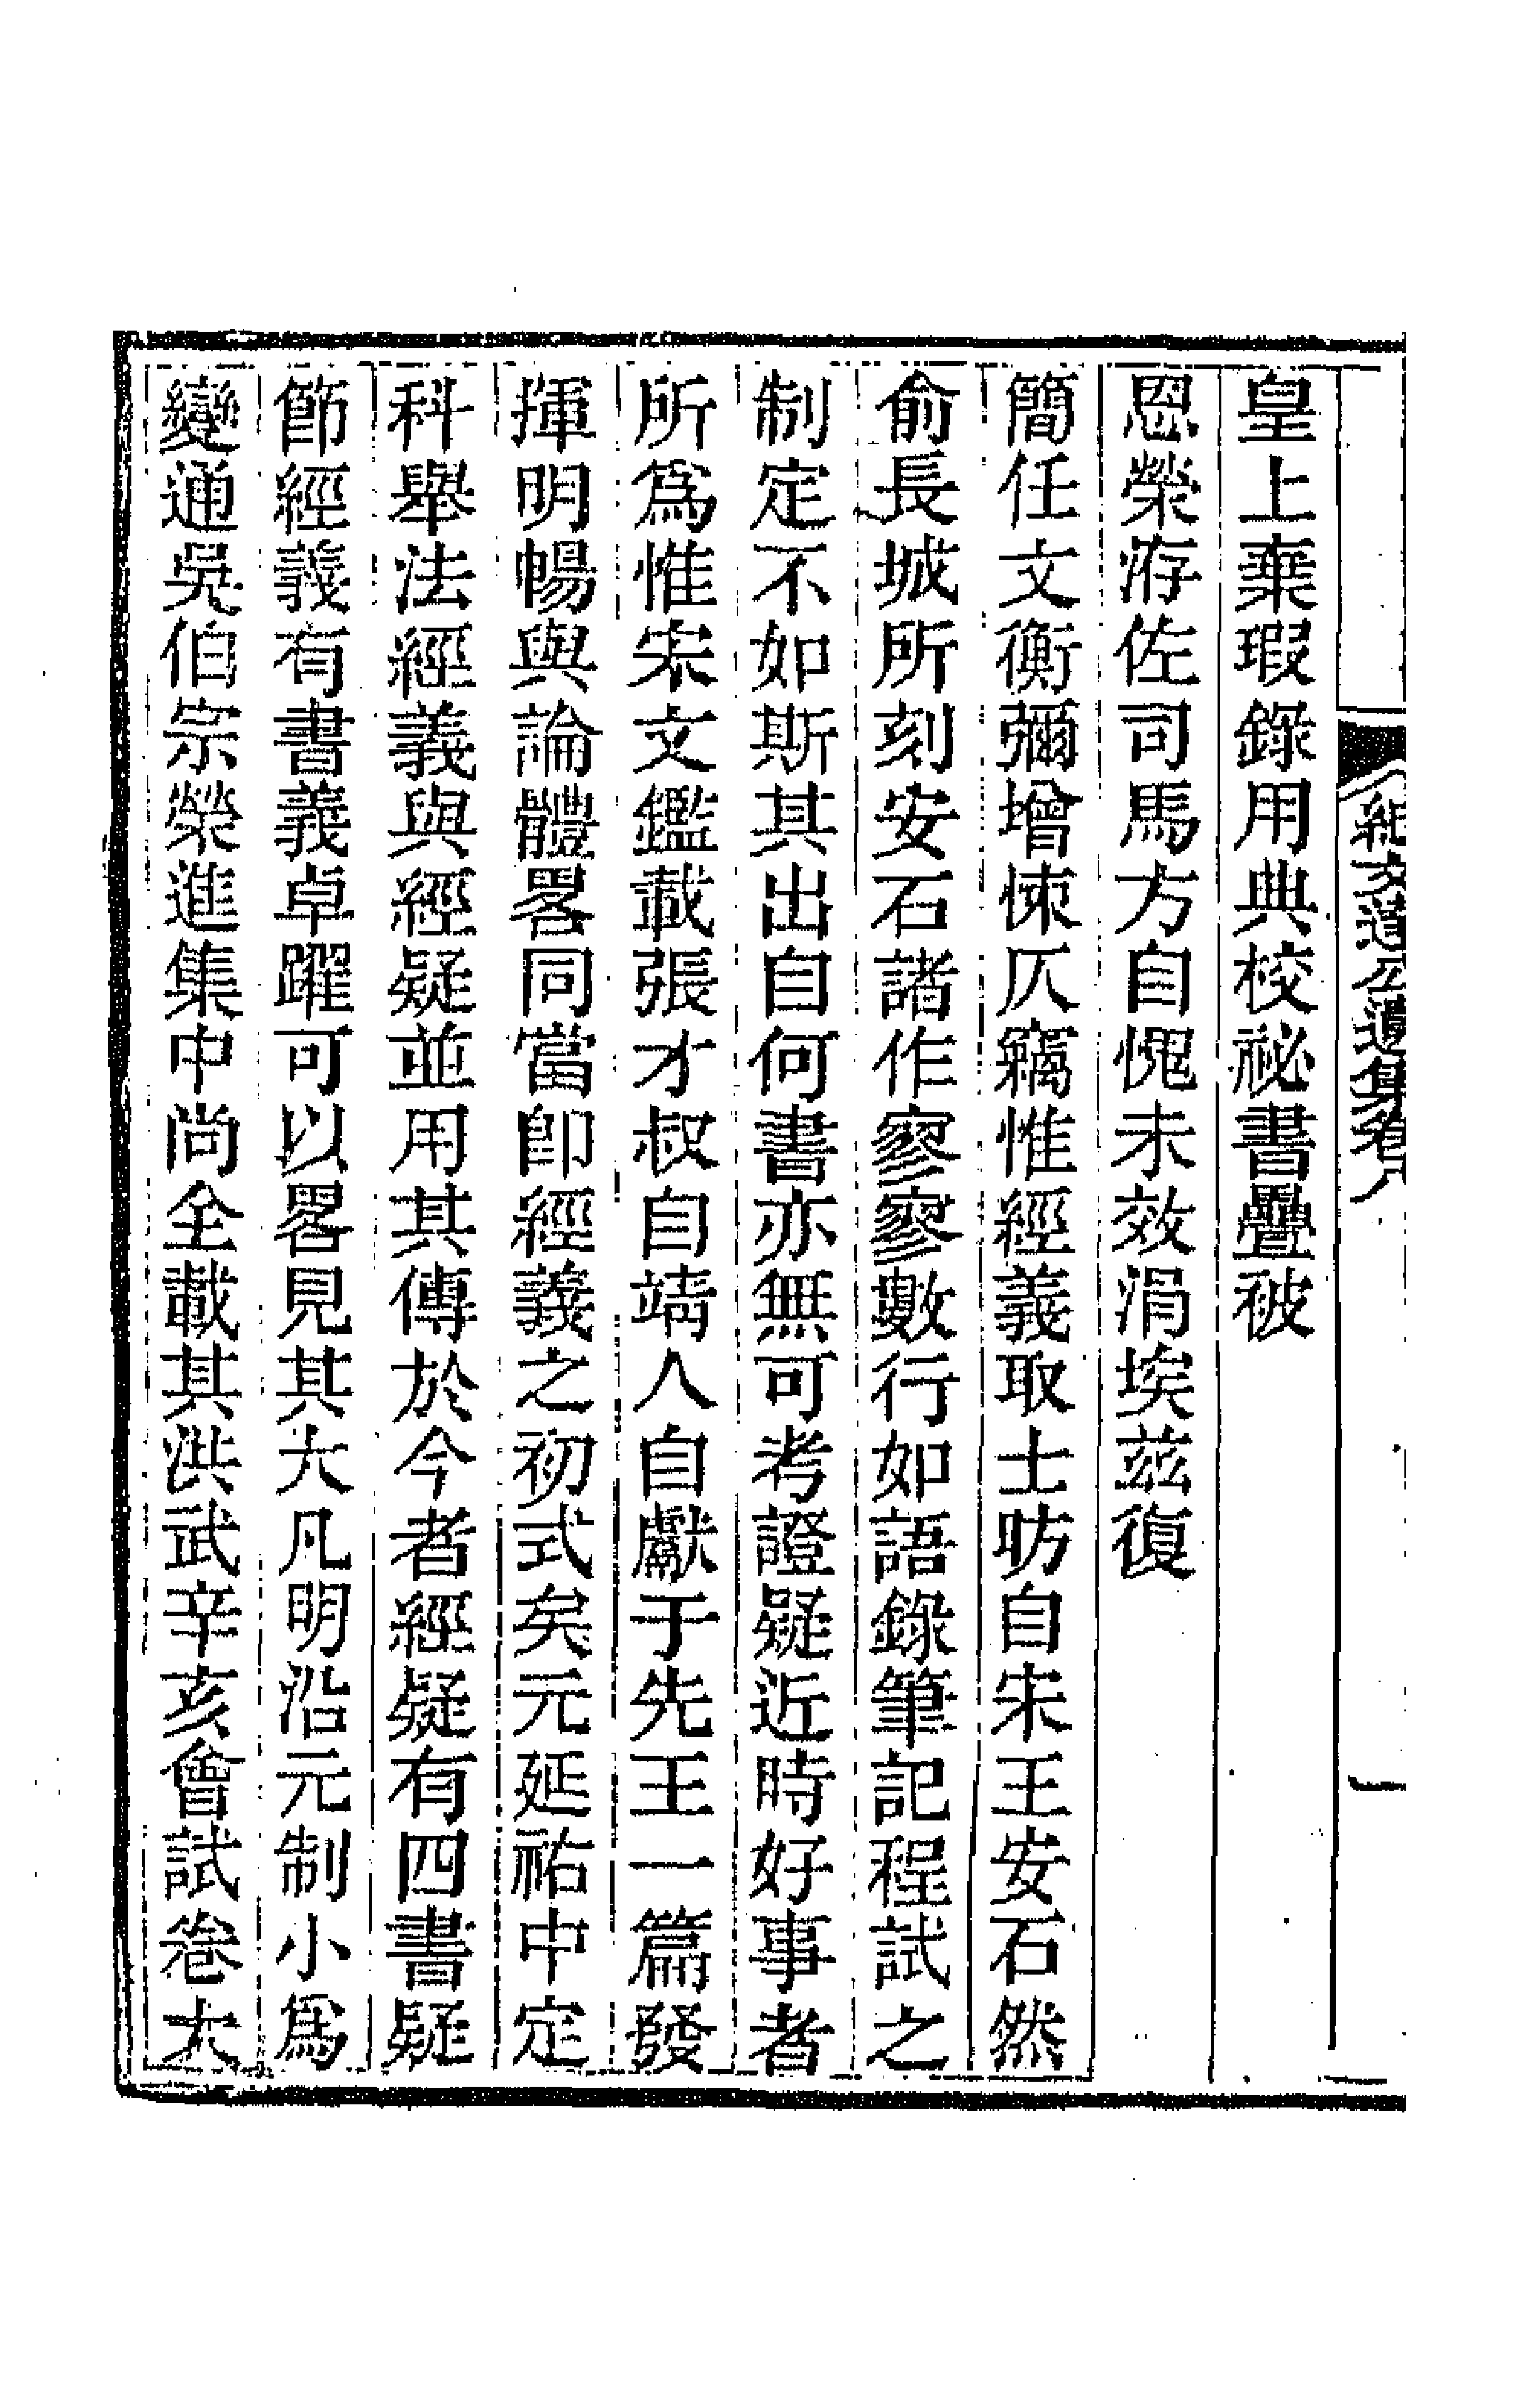 紀文達公遺集卷八
一
皇上棄瑕錄用典校祕書疊被
恩榮洊佐司馬方自愧未效涓埃茲復
簡任文衡彌增悚仄竊惟經義取士昉自宋王安石然
俞長城所刻安石諸作寥寥數行如語錄筆記程試之
制定不如斯其出自何書亦無可考證疑近時好事者
所爲惟宋文鑑載張才叔自靖人自獻于先王一篇發
揮明暢與論體畧同當卽經義之初式矣元延祐中定
科舉法經義與經疑並用其傳於今者經疑有四書疑
節經義有書義卓躍可以畧見其大凡明沿元制小爲
變通吳伯宗榮進集中尚全載其洪武辛亥會試卷大